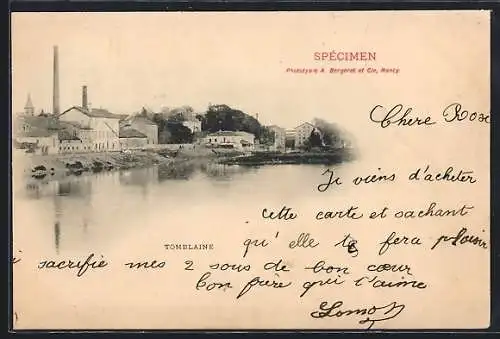 SPÉCIMEN
Phototypie A. Bergeret et Cie, Nancy
Chere Rose
Je viens d'acheter
cette carte et sachant
TOMBLAINE
qu'elle te fera plaisir
je sacrifie mes 2 sous de bon cœur
bon frère qui t'aime